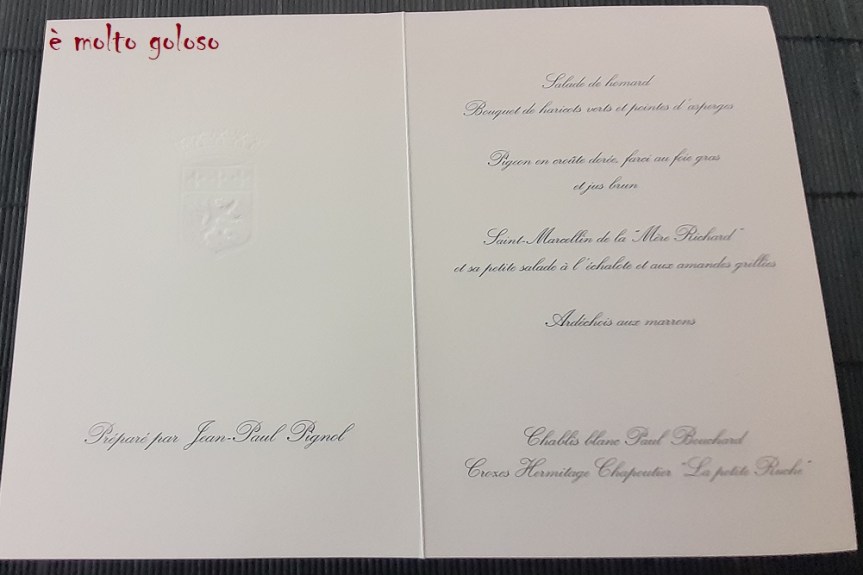 è molto goloso
Préparé par Jean-Paul Pignol
Salade de homard
Bouquet de haricots verts et pointes d'asperges
Pigeon en croûte dorée, farci au foie gras
et jus brun
Saint-Marcellin de la "Mère Richard"
et sa petite salade à l'échalote et aux amandes grillées
Ardéchois aux marrons
Chablis blanc Paul Bouchard
Crozes Hermitage Chapoutier "La petite Ruche"